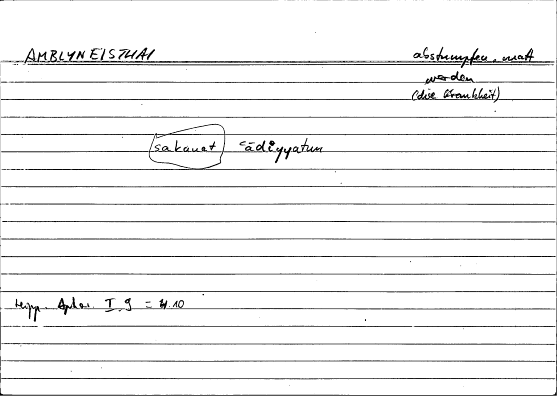 AMBLYNEISTHAI
abstumpfen, matt
werden
(die Krankheit)
sakanat ʿādiyyatun
Hipp. Aphor. I, 9 = 4.10